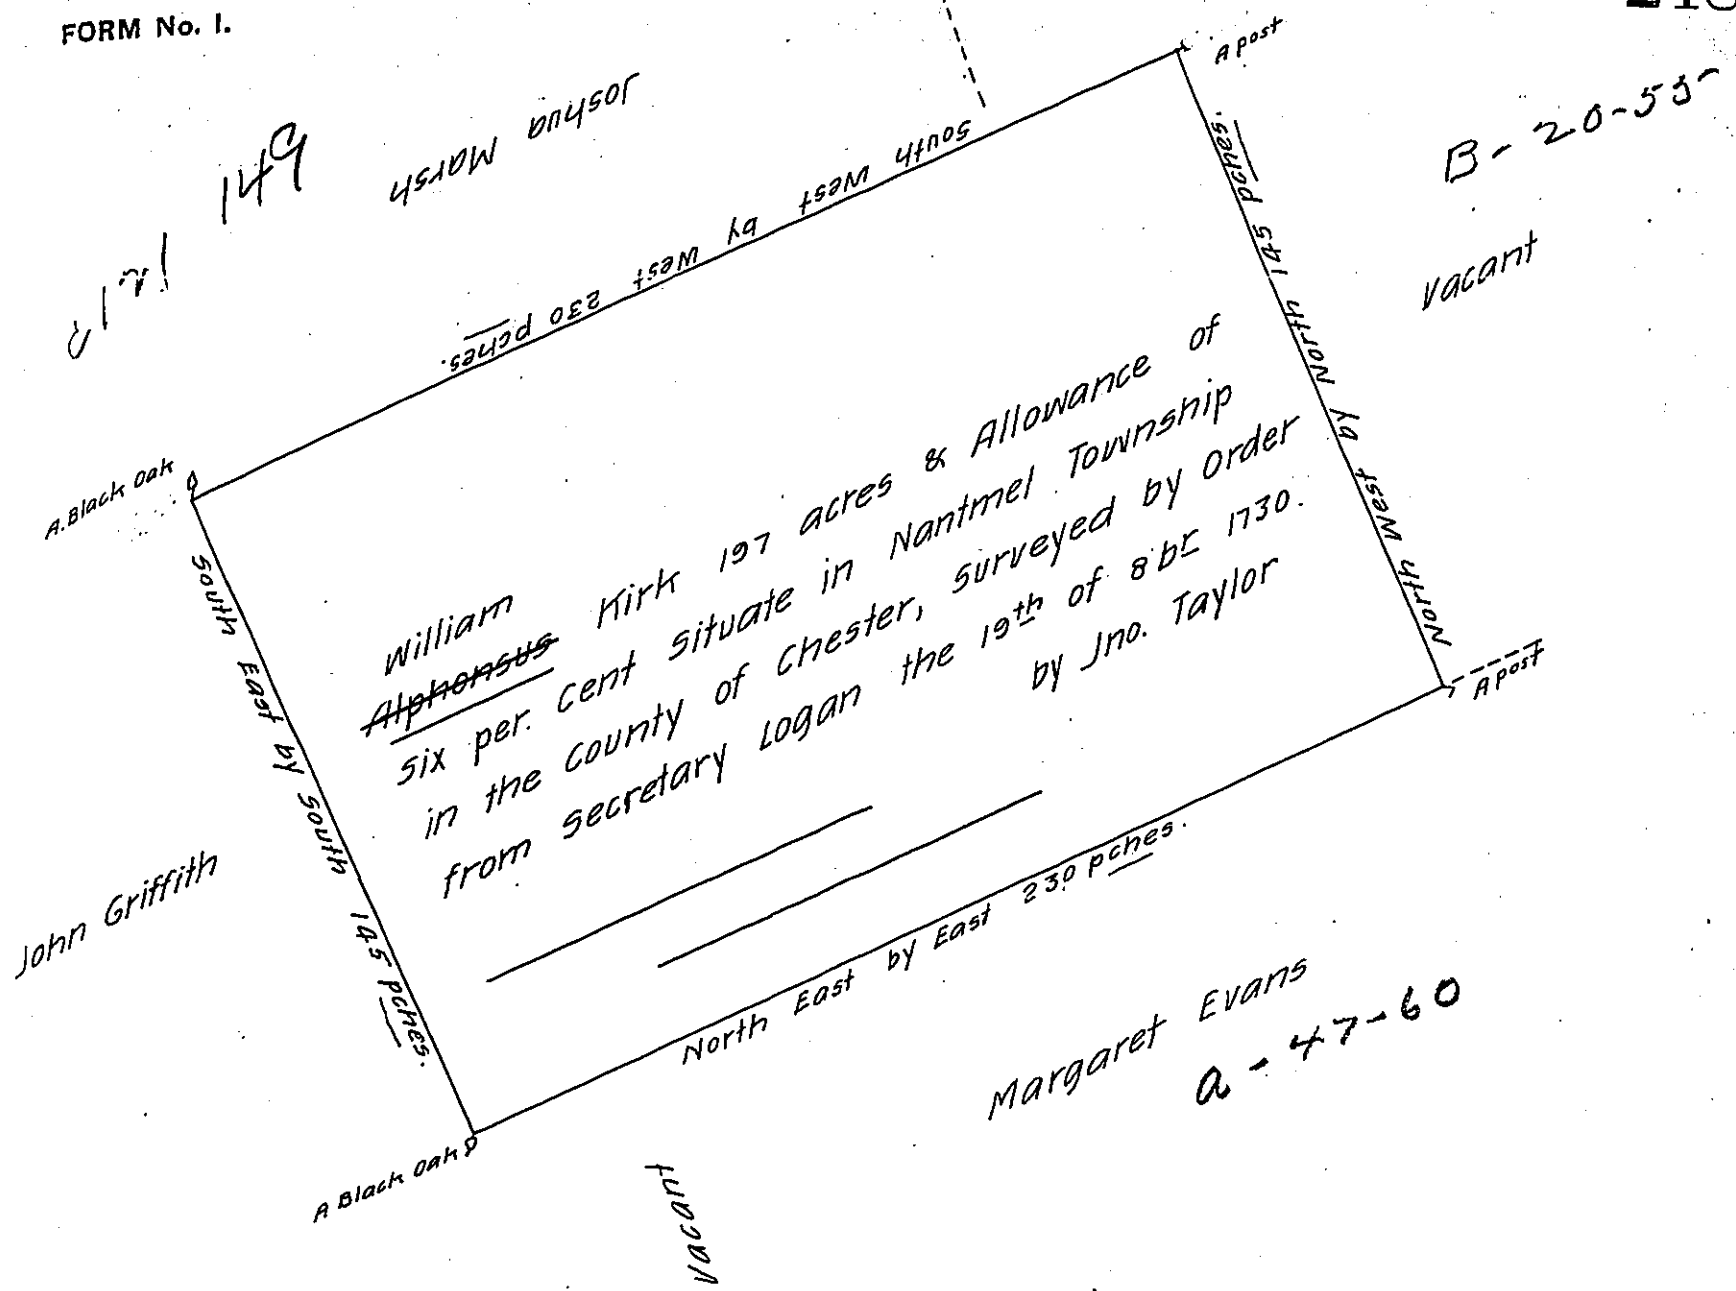 FORM No. 1.
149
Joshua Marsh
A post
B-20-55
Vacant
South West by West 230 pches.
North West by North 145 pches.
A. Black Oak
William
Alphonsus Kirk 197 acres & Allowance of
six per. Cent situate in Nantmel Township
in the county of Chester, surveyed by Order
from Secretary Logan the 19th of 8br 1730.
by Jno. Taylor
South East by South 145 pches.
John Griffith
A post
North East by East 230 pches.
Margaret Evans
a-47-60
A Black Oak
Vacant